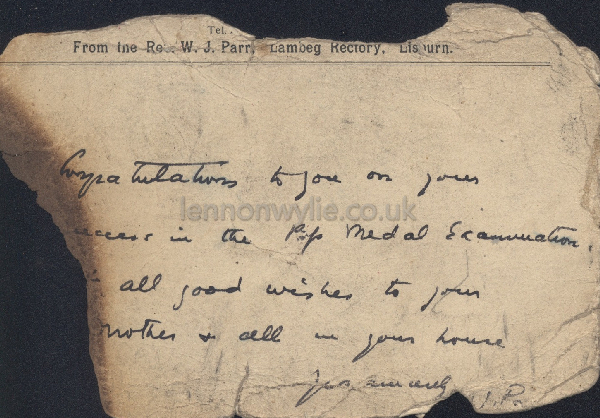 Tel.
From the Re. W. J. Parr, Lambeg Rectory, Lisburn.
Congratulations to you on your
lennonwylie.co.uk
ccess in the Medal Examination.
all good wishes to your
mother & all in your house
yrs sincerely